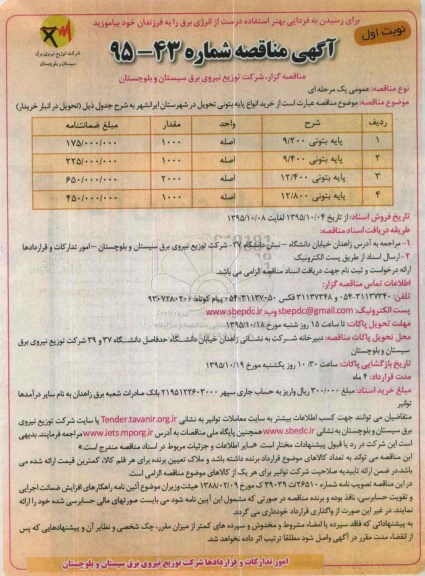 برای رسیدن به فردایی بهتر استفاده درست از انرژی برق را به فرزندان خود بیاموزید
نوبت اول
آگهی مناقصه شماره ۴۳-۹۵
شرکت توزیع نیروی برق
سیستان و بلوچستان
مناقصه گزار، شرکت توزیع نیروی برق سیستان و بلوچستان
نوع مناقصه: عمومی یک مرحله ای
موضوع مناقصه: موضوع مناقصه عبارت است از خرید انواع پایه بتونی تحویل در شهرستان ایرانشهر به شرح جدول ذیل (تحویل در انبار خریدار)
ردیف شرح واحد مقدار مبلغ ضمانتنامه
۱ پایه بتونی ۹/۲۰۰ اصله ۱۰۰۰ ۱۷۵/۰۰۰/۰۰۰
۲ پایه بتونی ۹/۴۰۰ اصله ۱۰۰۰ ۲۲۵/۰۰۰/۰۰۰
۳ پایه بتونی ۱۲/۴۰۰ اصله ۲۰۰۰ ۶۵۰/۰۰۰/۰۰۰
۴ پایه بتونی ۱۲/۸۰۰ اصله ۱۰۰۰ ۴۵۰/۰۰۰/۰۰۰
تاریخ فروش اسناد: از تاریخ ۱۳۹۵/۱۰/۰۴ لغایت ۱۳۹۵/۱۰/۰۸
طریقه دریافت اسناد مناقصه:
۱- مراجعه به آدرس زاهدان خیابان دانشگاه – نبش دانشگاه ۳۷- شرکت توزیع نیروی برق سیستان و بلوچستان – امور تدارکات و قراردادها
۲-ارسال اسناد از طریق پست الکترونیک
ارائه درخواست و ثبت نام جهت دریافت اسناد مناقصه الزامی می باشد.
اطلاعات تماس مناقصه گزار:
تلفن: ۳۱۱۳۷۳۴۰-۰۵۴ و ۳۱۱۳۷۳۴۸ فکس ۳۱۱۳۷۰۵۰-۰۵۴ پیام کوتاه:
پست الکترونیک: sbepdc@gmail.com وب: www.sbepdc.ir
مهلت تحویل پاکات: تا ساعت ۱۵ روز شنبه مورخ ۱۳۹۵/۱۰/۱۸
محل تحویل پاکات مناقصه: دبیرخانه شرکت به نشانی زاهدان خیابان دانشگاه حدفاصل دانشگاه ۳۷ و ۳۹ شرکت توزیع نیروی برق
سیستان و بلوچستان
تاریخ بازگشایی پاکات: ساعت ۱۰:۳۰ روز یکشنبه مورخ ۱۳۹۵/۱۰/۱۹
مدت قرارداد: ۴ ماه
مبلغ خرید اسناد: مبلغ ۳۰۰/۰۰۰ ریال واریز به حساب جاری سپهر ۲۱۹۵۱۲۲۶۰۳۰۰۰ بانک صادرات شعبه برق زاهدان به نام سایر درآمدها
توانیر
متقاضیان می توانند جهت کسب اطلاعات بیشتر به سایت معاملات توانیر به نشانی Tender.tavanir.org.ir یا سایت شرکت توزیع نیروی
برق سیستان و بلوچستان به نشانی www.sbedc.ir همچنین پایگاه ملی مناقصات به آدرس www.iets.mporg.ir مراجعه فرمایند. بدیهی
است این شرکت در رد یا قبول پیشنهادات مختار است «سایر اطلاعات و جزئیات مربوط در اسناد مناقصه مندرج است»
این مناقصه می تواند به تعداد کالاهای موضوع قرارداد برنده داشته باشد و ملاک تعیین برنده برای هر قلم کالا، کمترین قیمت ارائه شده می
باشد.در ضمن ارائه تاییدیه صلاحیت شرکت توانیر برای هر یک از کالاهای موضوع مناقصه الزامی است.
در این مناقصه تصویب نامه شماره ۲۶۵۱۰/ت ۳۹۰۳۹ک مورخ ۱۳۸۸/۰۲/۰۹ هیئت وزیران موضوع آئین نامه راهکارهای افزایش ضمانت اجرایی
و تقویت حسابرسی، نافذ بوده و برنده مناقصه در صورتی که مشمول این آیین نامه شود می بایست صورتهای مالی حسابرسی شده خود را ارائه
نمایند. در غیر این صورت از واگذاری قرارداد خودداری می گردد.
به پیشنهاداتی که فاقد سپرده یا امضاء مشروط و مخدوش و سپرده های کمتر از میزان مقرر، چک شخصی و نظایر آن و پیشنهادهایی که پس از
انقضاء مدت مقرر در آگهی واصل شود مطلقا ترتیب اثر داده نخواهد شد.
امور تدارکات و قراردادها شرکت توزیع نیروی برق سیستان و بلوچستان